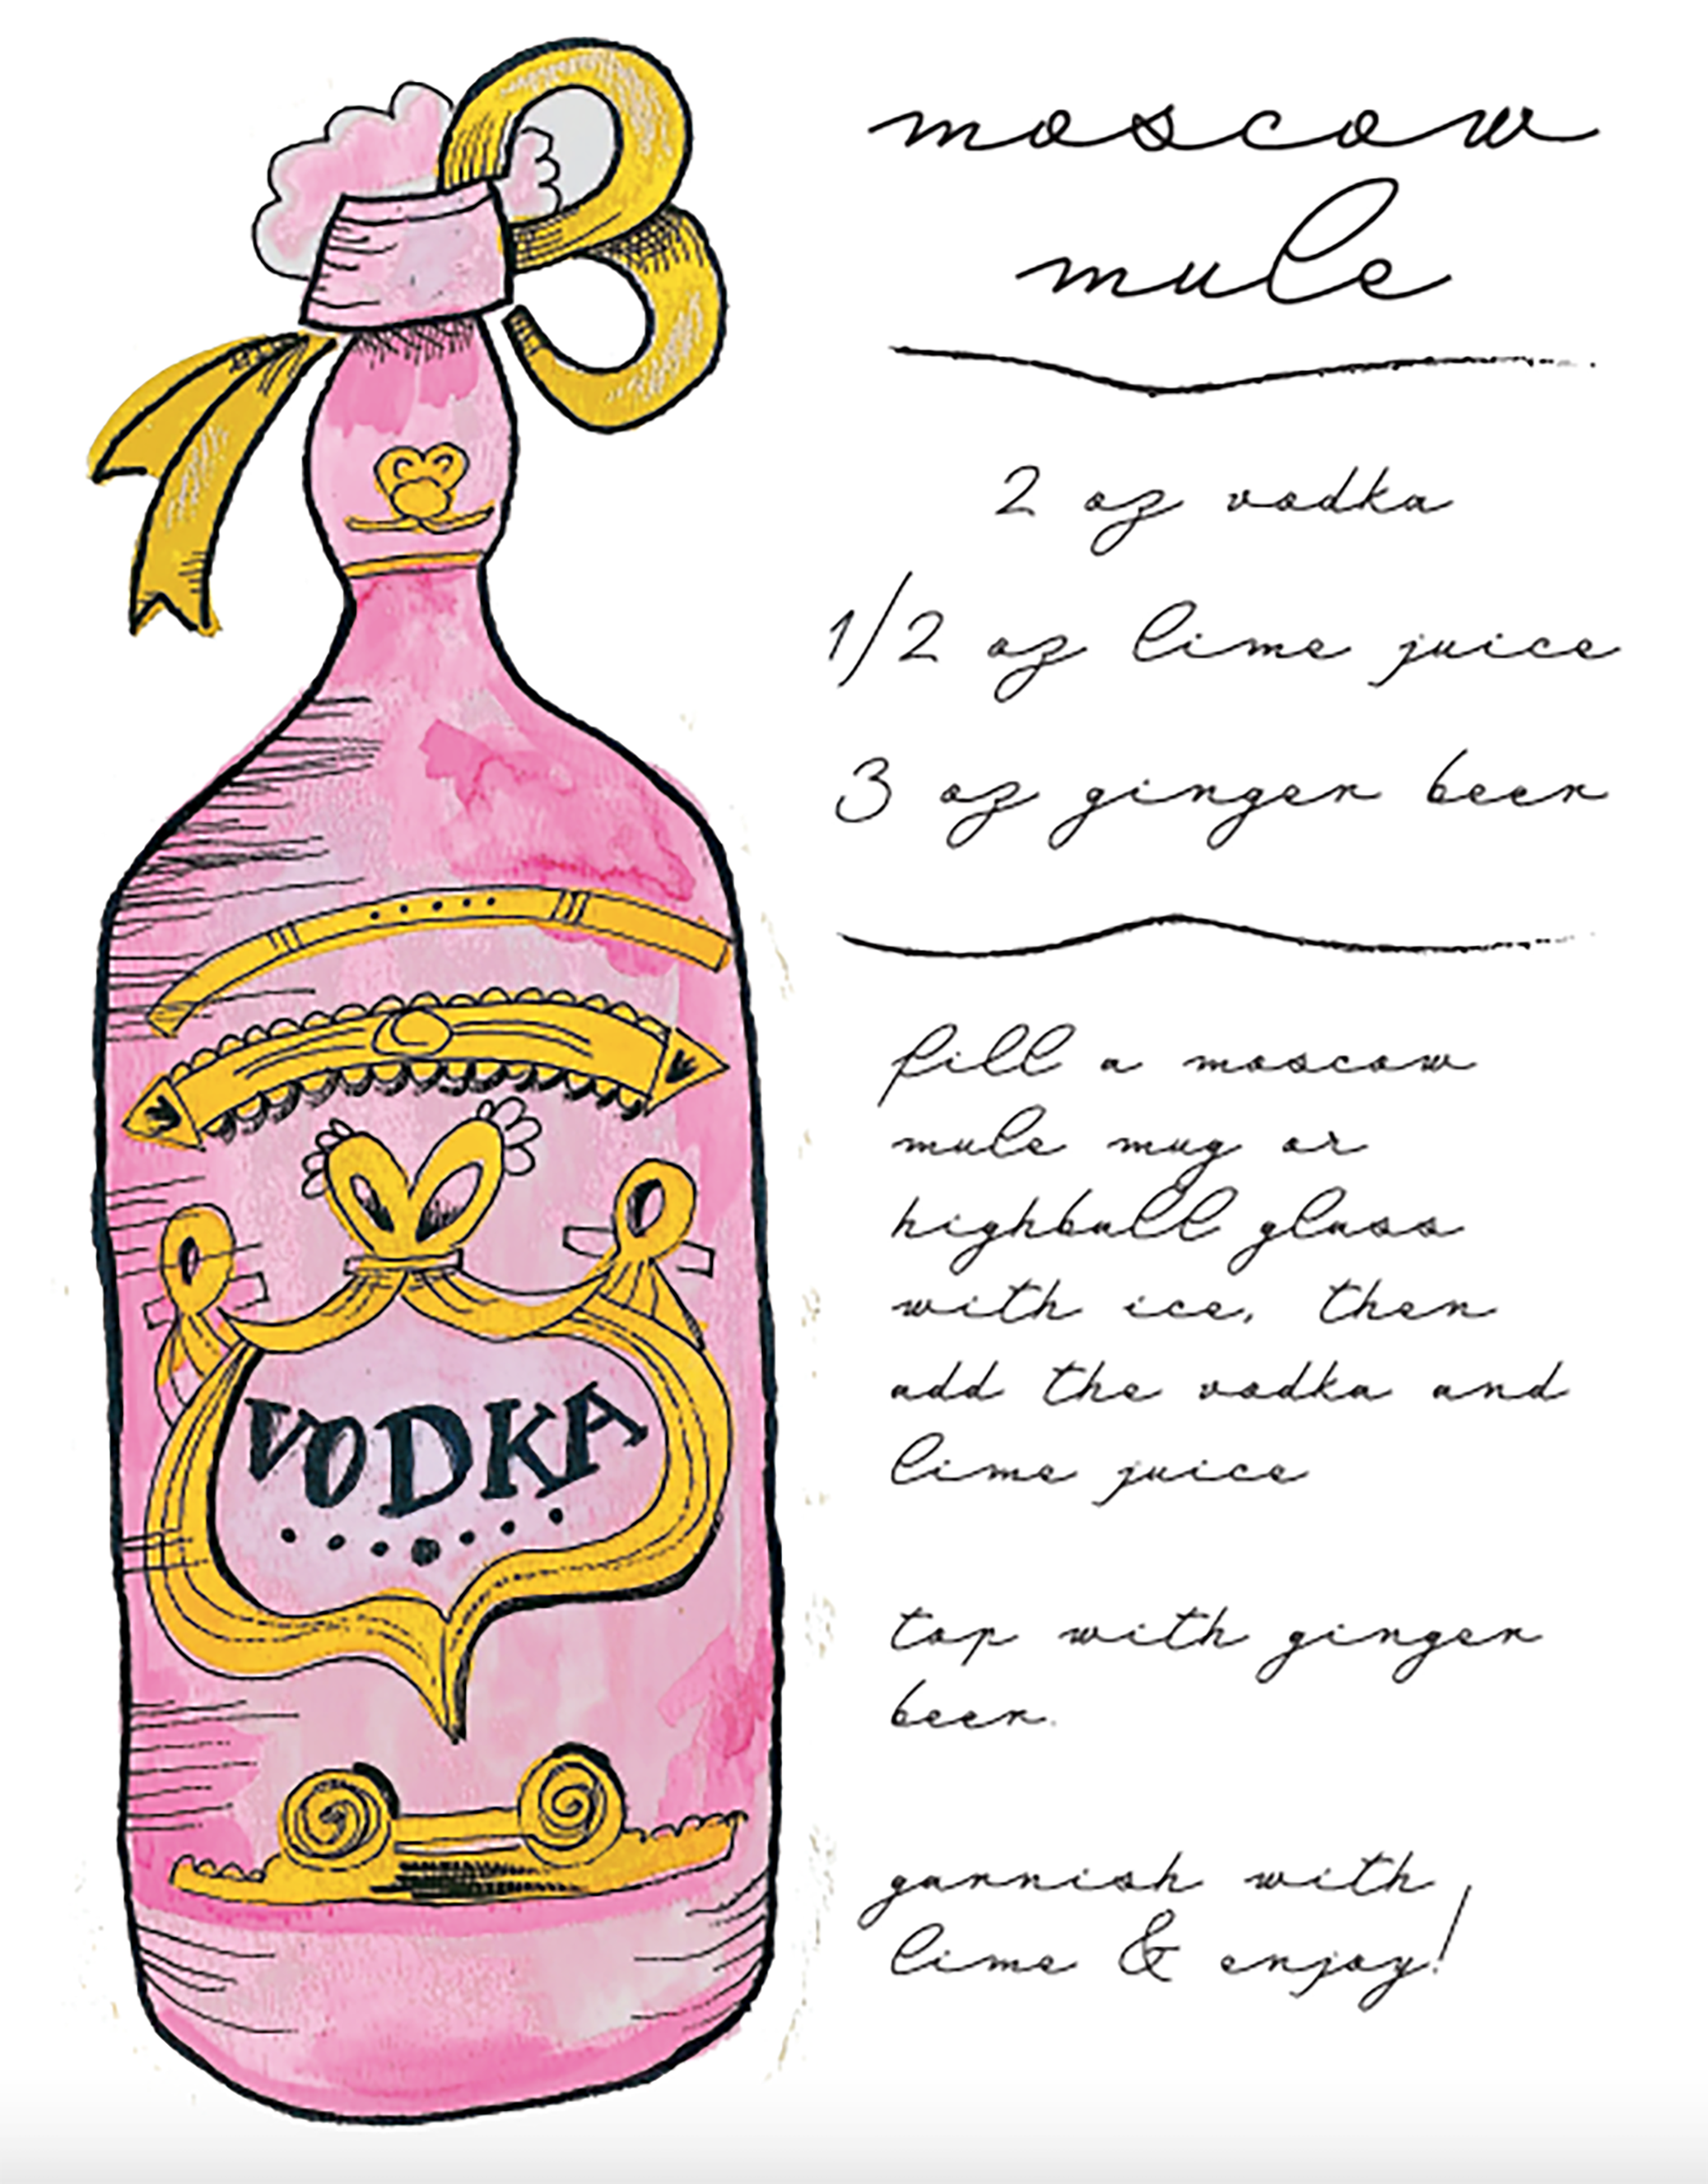 moscow
mule
2 oz vodka
1/2 oz lime juice
3 oz ginger beer
VODKA
fill a moscow
mule mug or
highball glass
with ice, then
add the vodka and
lime juice
top with ginger
beer.
garnish with
lime & enjoy!